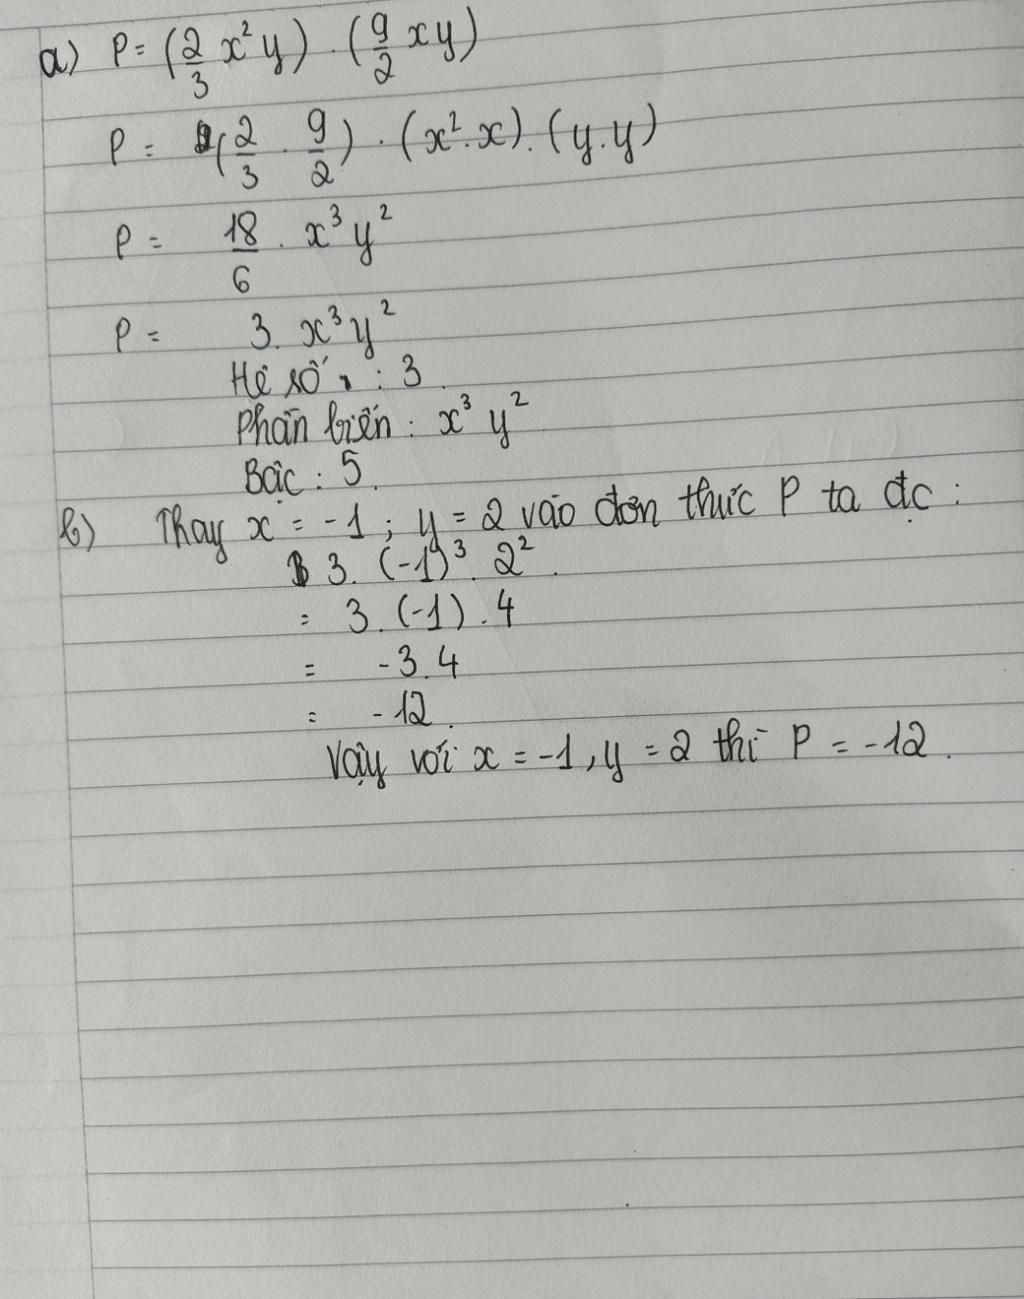 a) P = (2/3 x²y) . (9/2 xy)
P = (2/3 . 9/2) . (x².x) . (y.y)
P = 18/6 . x³y²
P = 3. x³y²
Hệ số : 3
Phần biến : x³ y²
Bậc : 5.
b) Thay x = -1 ; y = 2 vào đơn thức P ta đc :
3. (-1)³. 2².
= 3. (-1) . 4
= -3.4
= -12.
Vậy với x = -1, y = 2 thì P = -12.